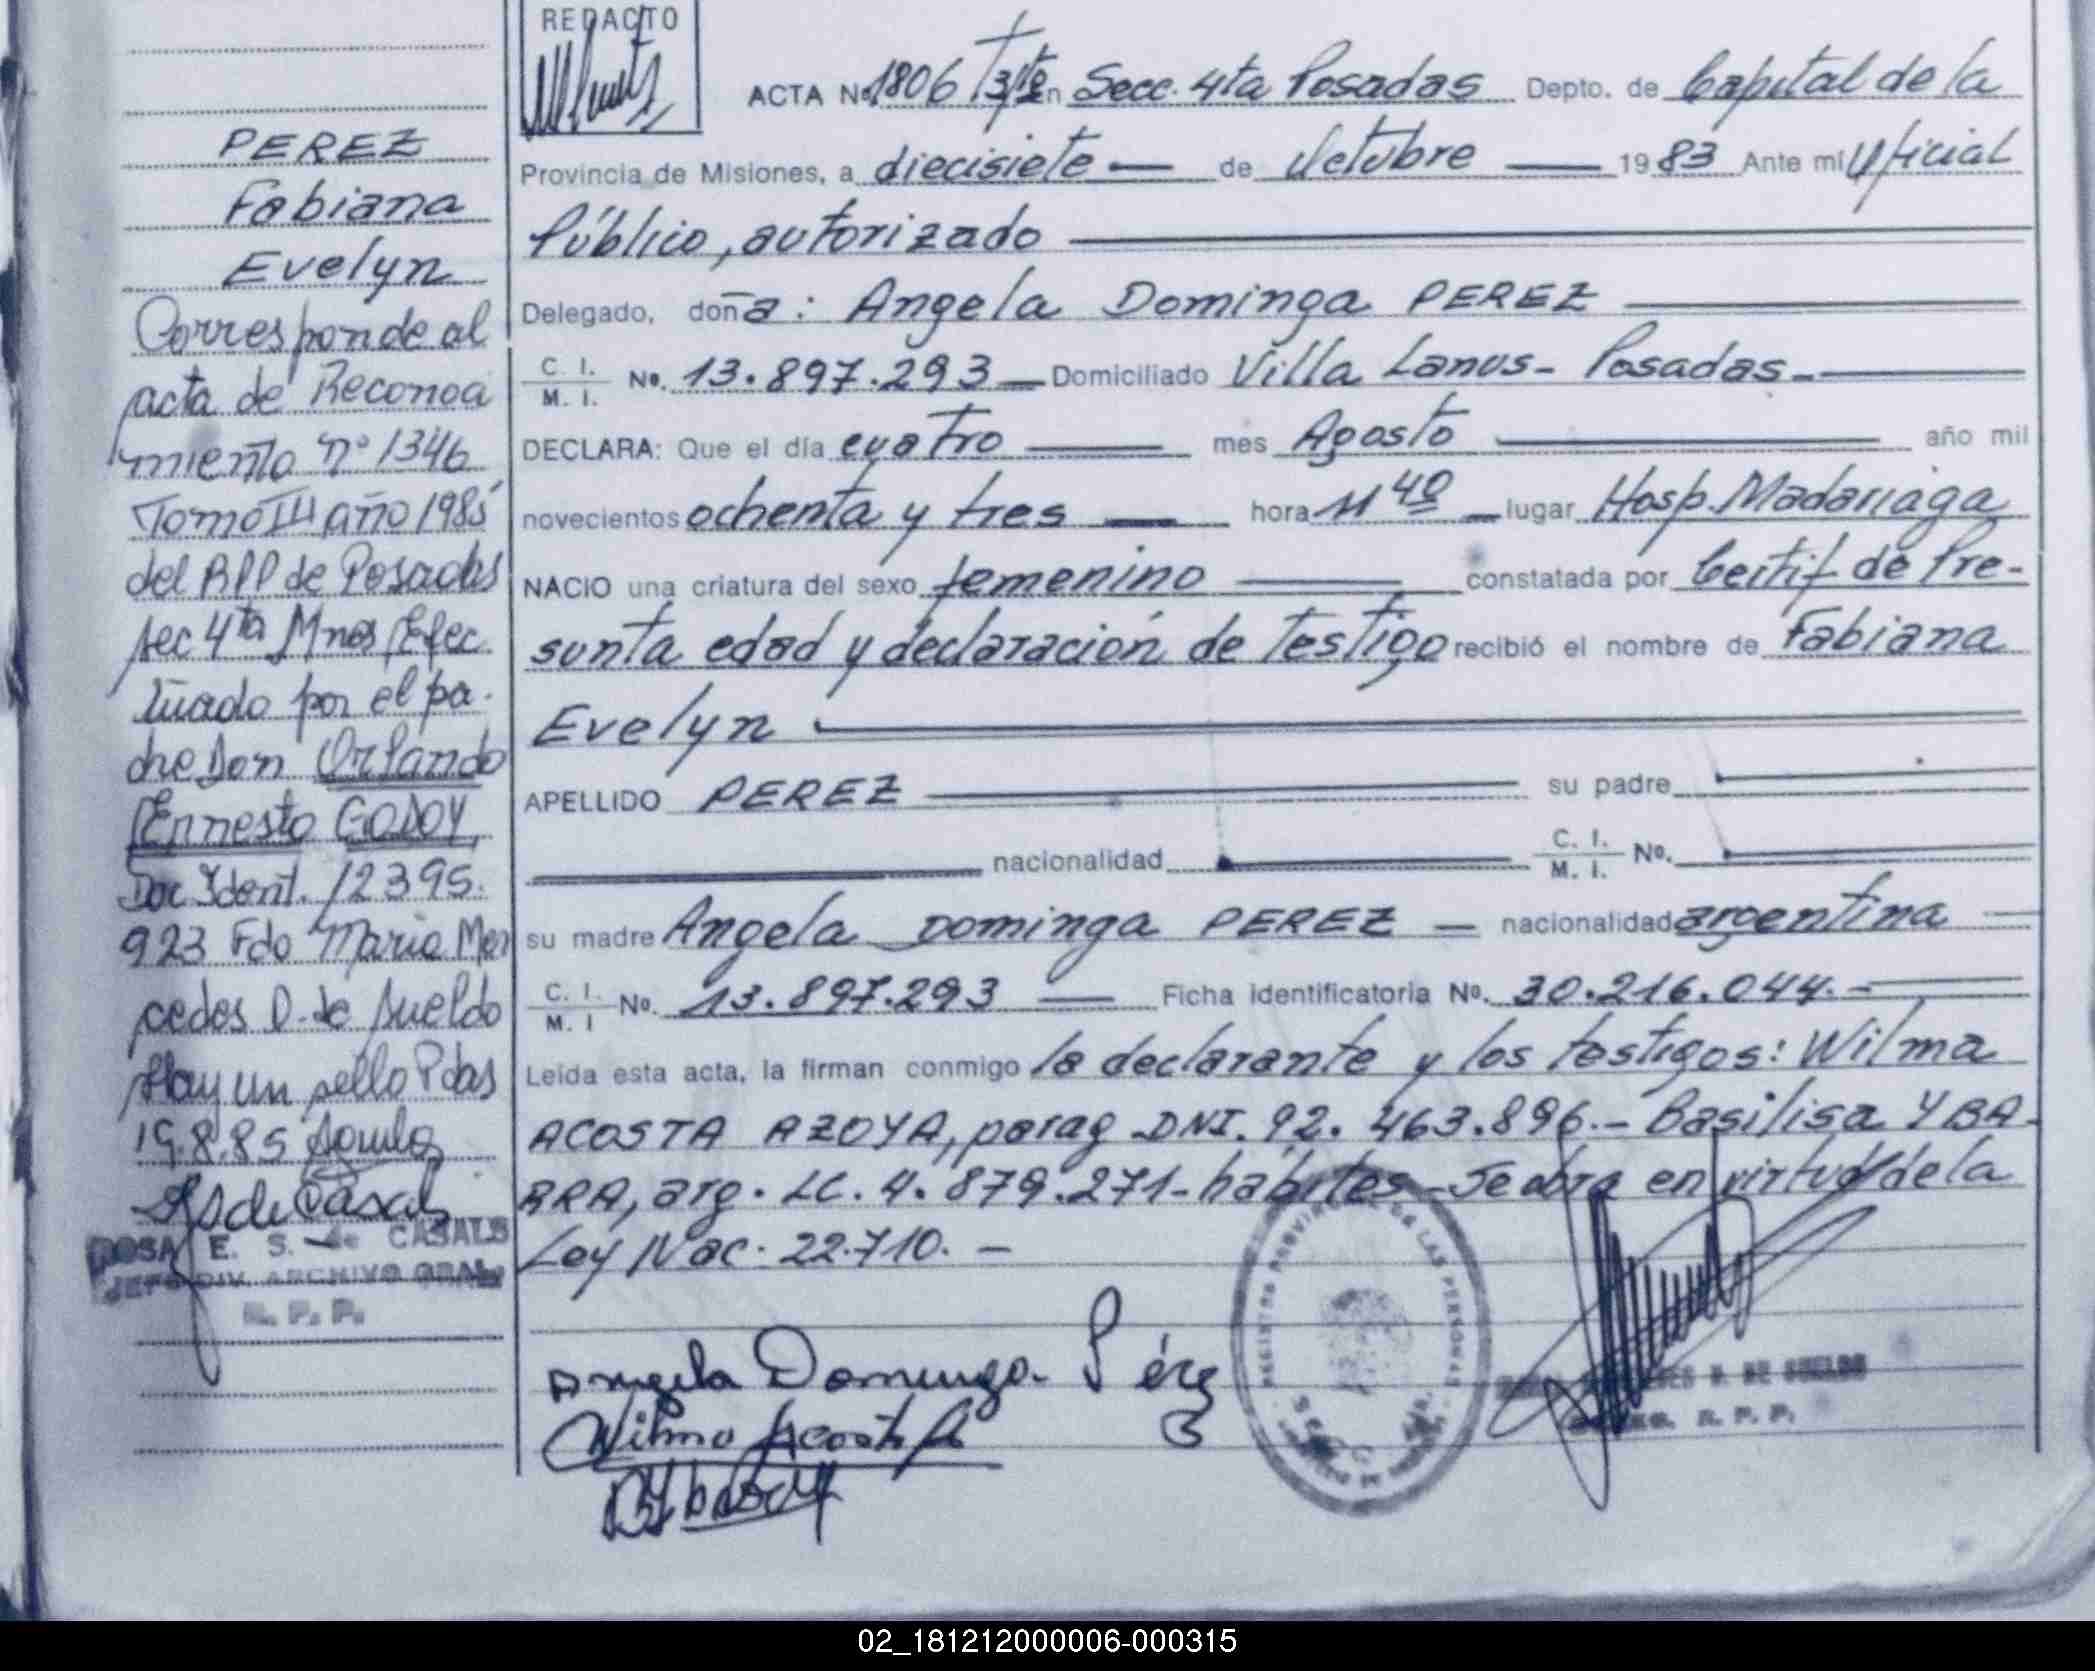 PEREZ
Fabiana
Evelyn
Corresponde al
acta de Reconoci
miento nº 1346
Tomo III año 1985
del RPP de Posadas
sec 4ta Mnes Efec
tuado por el pa-
dre Don Orlando
Ernesto GODOY,
Doc Ident. 12395.
923 Fdo Maria Mer
cedes D. de Sueldo
Hay un sello Pdas
19.8.85
ROSA E. S. de CASALS
JEFE DIV. ARCHIVO GRAL.
R. P. P.
REDACTO
ACTA Nº 1806 en Secc. 4ta Posadas Depto. de Capital de la
Provincia de Misiones, a diecisiete — de Octubre — 1983 Ante mí Oficial
Público, autorizado
Delegado, doña: Angela Dominga PEREZ
C. I. / M. I. No. 13.897.293 — Domiciliado Villa Lanus - Posadas -
DECLARA: Que el día cuatro — mes Agosto — año mil
novecientos ochenta y tres — hora 11 40 — lugar Hosp. Madariaga
NACIO una criatura del sexo femenino — constatada por Certif de Pre-
sunta edad y declaración de testigo recibió el nombre de Fabiana
Evelyn
APELLIDO PEREZ — su padre
nacionalidad C. I. / M. I. No.
su madre Angela Dominga PEREZ — nacionalidad argentina
C. I. / M. I No. 13.897.293 — Ficha identificatoria No. 30.216.044. -
Leída esta acta, la firman conmigo la declarante y los testigos: Wilma
ACOSTA AZOYA, parag DNI. 92. 463.896.- Basilisa YBA-
RRA, arg. LC. 4. 879.271- hábiles - Se labra en virtud de la
Ley Nac. 22.710. -
Angela Dominga Pérez
Wilma Acosta A
REGISTRO PROVINCIAL DE LAS PERSONAS
D. DE SUELDO
R. P. P.
02_181212000006-000315